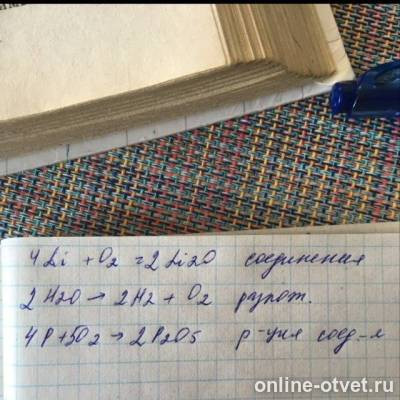 4Li + O2 = 2Li2O соединения
2H2O → 2H2 + O2 разлож.
4P + 5O2 → 2P2O5 р-ция соед-я
online-otvet.ru